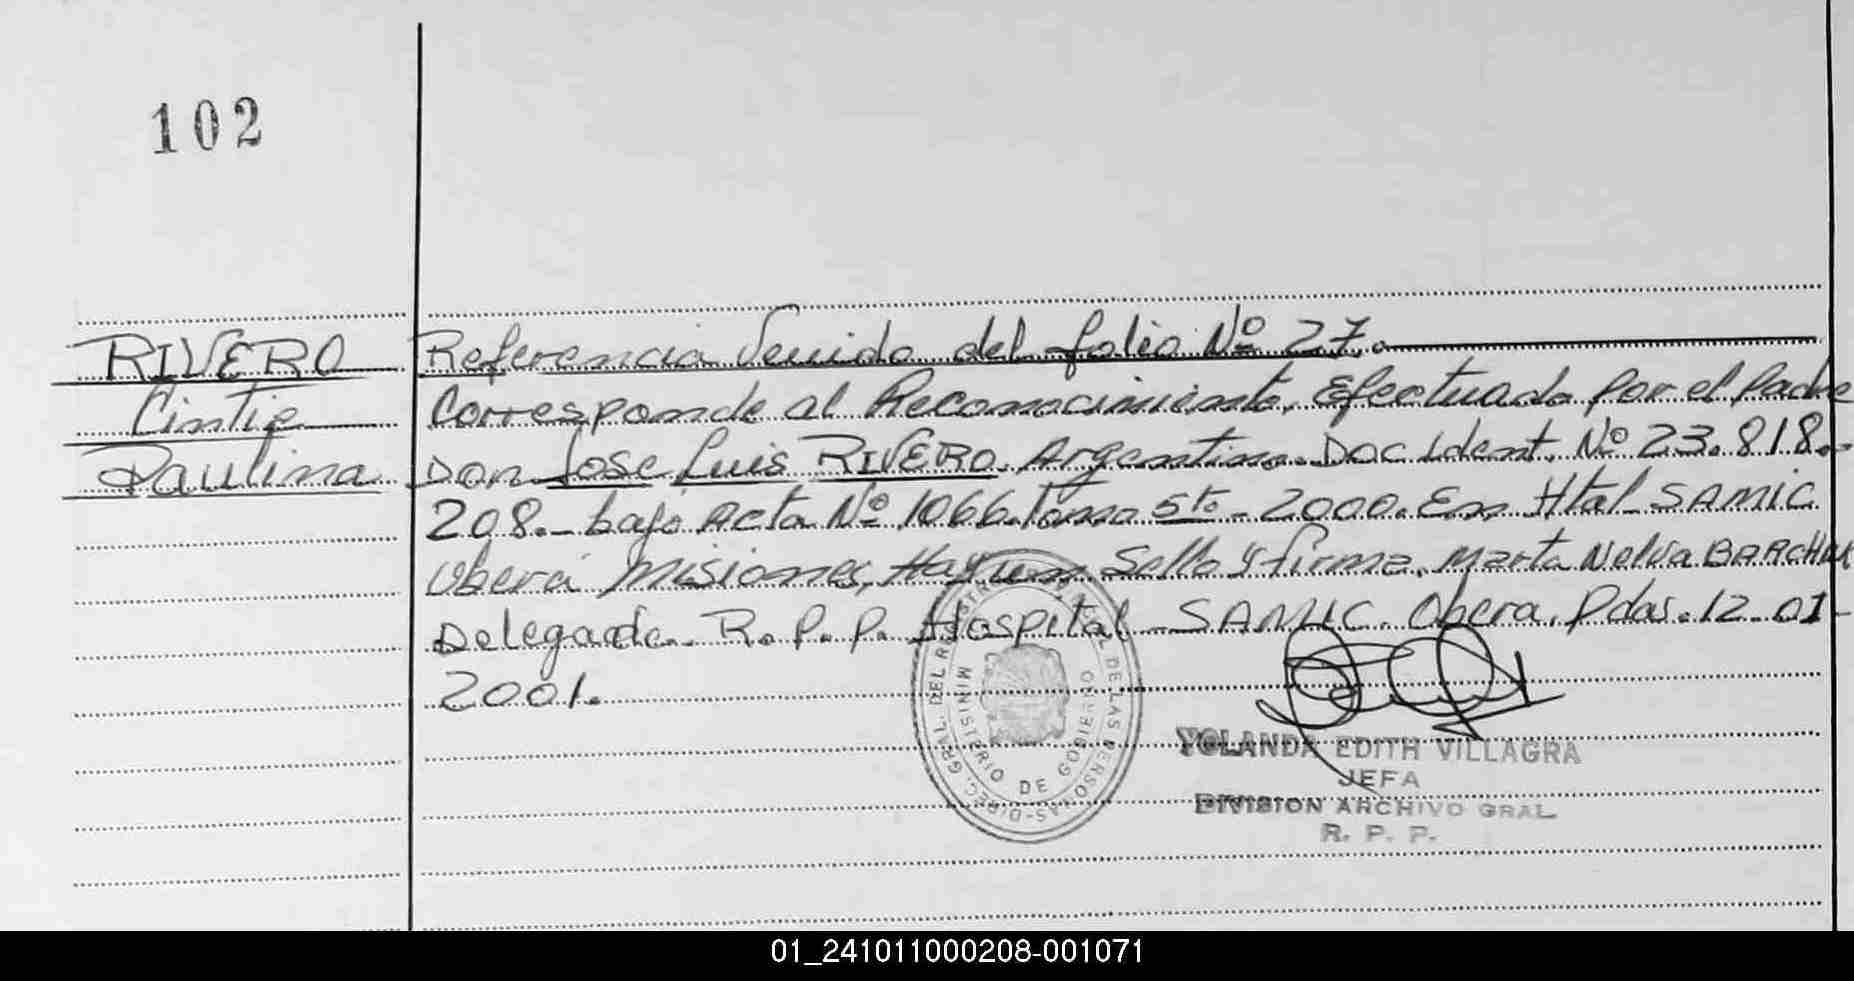 102
RIVERO
Cintia
Paulina
Referencia Venido del folio Nº 27.
Corresponde al Reconocimiento, Efectuado por el Padre
Don Jose Luis RIVERO. Argentino. Doc Ident. Nº 23.818.-
208.- bajo Acta Nº 1066. Tomo 5to - 2000. En Htal SAMIC
Obera Misiones, Hay un Sello y firma. Marta Nelva
Delegada. R.P.P. Hospital - SAMIC. Obera. Pdas. 12-01-
2001.
DIREC. GRAL. DEL REGISTRO DE LAS PERSONAS
MINISTERIO DE GOBIERNO
YOLANDA EDITH VILLAGRA
JEFA
DIVISION ARCHIVO GRAL.
R. P. P.
01_241011000208-001071